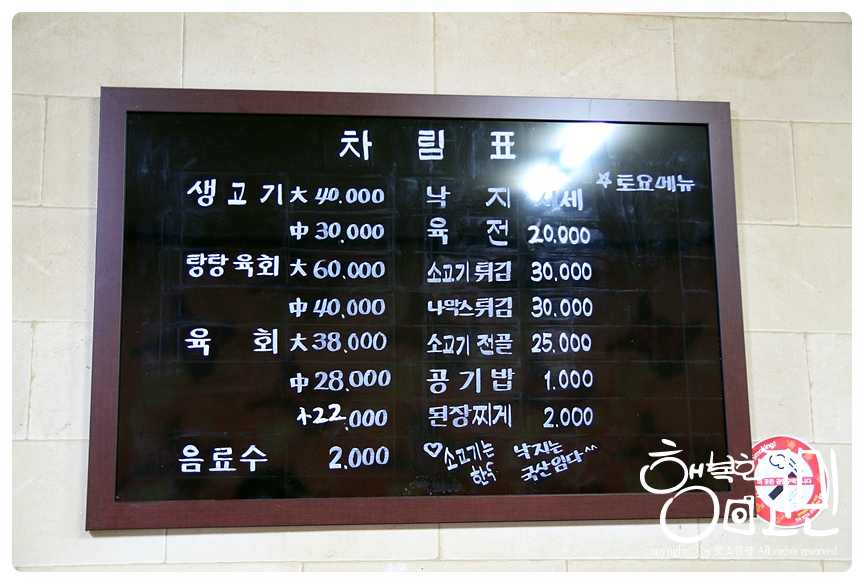 차 림 표
☆토요메뉴
생고기 大 40.000
中 30.000
탕탕육회 大 60.000
中 40.000
육 회 大 38.000
中 28.000
小 22.000
음료수 2.000
낙 지 시세
육 전 20.000
소고기튀김 30.000
나막스튀김 30.000
소고기 전골 25.000
공기밥 1.000
된장찌게 2.000
♡소고기는 낙지는
한우 국산임다^^
행복한
copyright ⓒ by All rights reserved